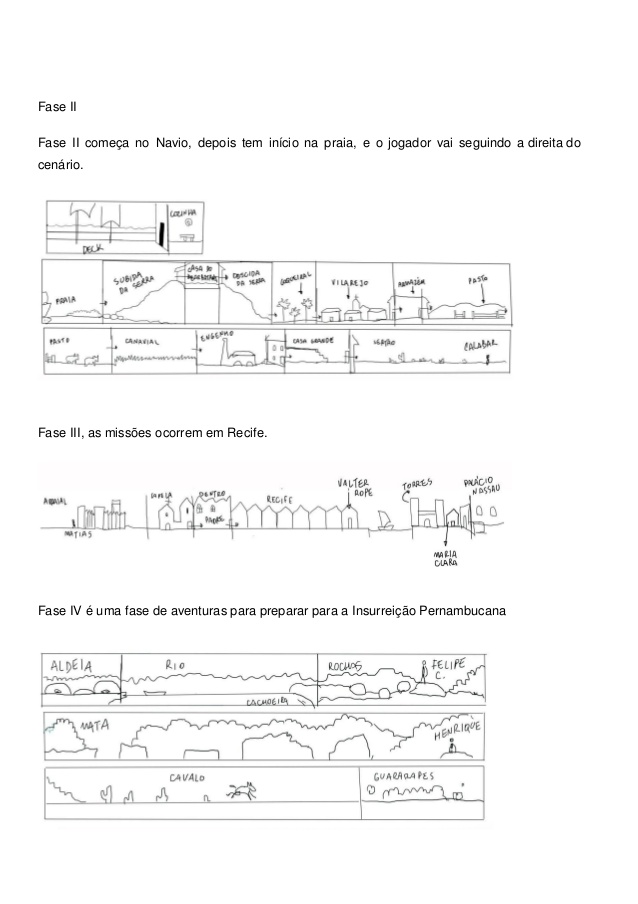 Fase II
Fase II começa no Navio, depois tem início na praia, e o jogador vai seguindo a direita do
cenário.
COZINHA
DECK
PRAIA
SUBIDA
DA SERRA
CASA DO
DESCIDA
DA SERRA
COQUEIRAL
VILAREJO
ARMAZÉM
PASTO
PASTO
CANAVIAL
ENGENHO
CASA GRANDE
SERTÃO
CALABAR
Fase III, as missões ocorrem em Recife.
ARRAIAL
MATIAS
CAPELA
DENTRO
PADRE
RECIFE
VALTER
ROPE
TORRES
PALÁCIO
NASSAU
MARIA
CLARA
Fase IV é uma fase de aventuras para preparar para a Insurreição Pernambucana
ALDEIA
RIO
CACHOEIRA
ROCHAS
FELIPE
C.
MATA
HENRIQUE
CAVALO
GUARARAPES